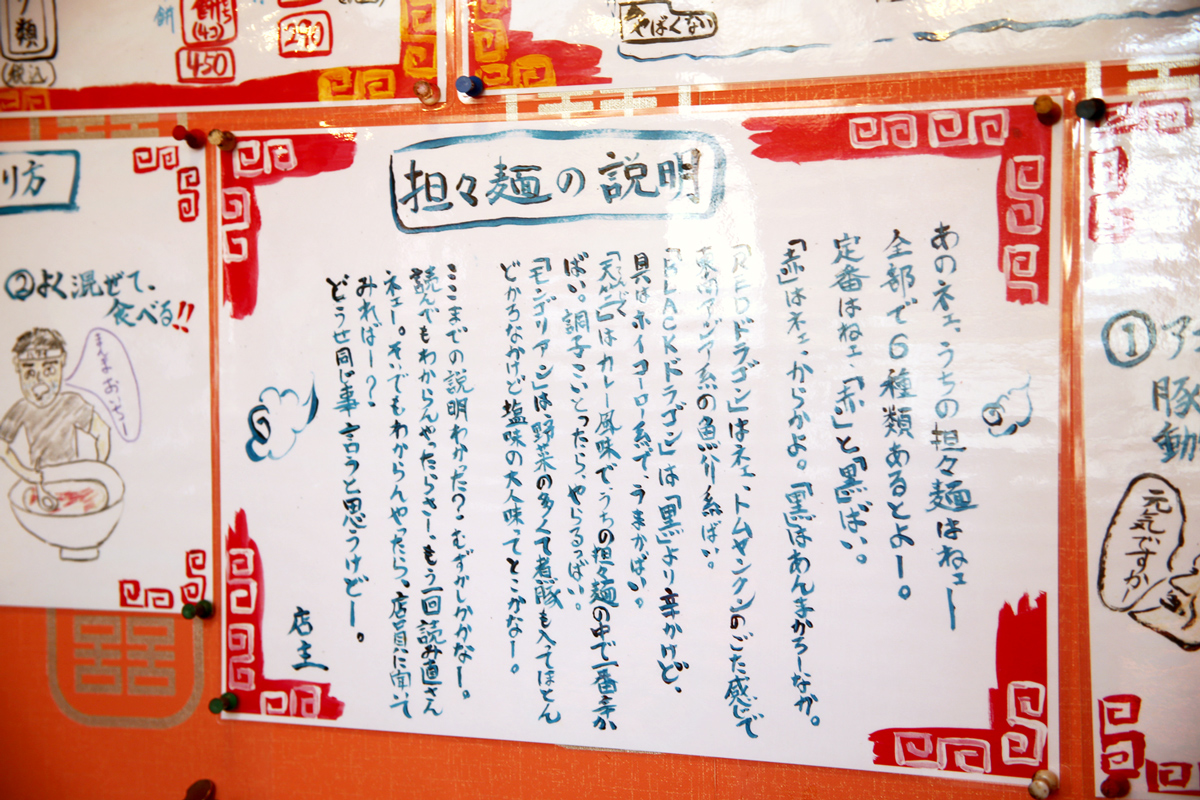 担々麺の説明
あのネェ、うちの担々麺はねェー
全部で6種類あるとよー。
定番はねェ、「赤」と「黒」ばい。
「赤」はネェ、からかよ。「黒」はあんまからーなか。
「REDドラゴン」はネェ、トムヤンクンのごた感じで
東南アジア系の魚介系ばい。
「BLACKドラゴン」は「黒」より辛かけど、
具はホイコーロー系で、うまかばい。
は、カレー風味で、うちの担々麺の中で一番辛か
ばい。調子こいとったら、やらるっばい。
「モンゴリアン」は野菜の多くて煮豚も入ってほとん
どからなかけど塩味の大人味ってとこかなー。
ここまでの説明わかった?むずかしかかなー。
読んでもわからんやったらさー、もう一回読み直さん
ネェー。そいでもわからんやったら、店員に聞いて
みればー?
どうせ同じ事言うと思うけどー。
店主
り方
②よく混ぜて、
食べる!!
まんまおいちー
餅
餅
(4コ)
450
290
類
(税込)
やばくない
①ア
豚
動
元気ですかー